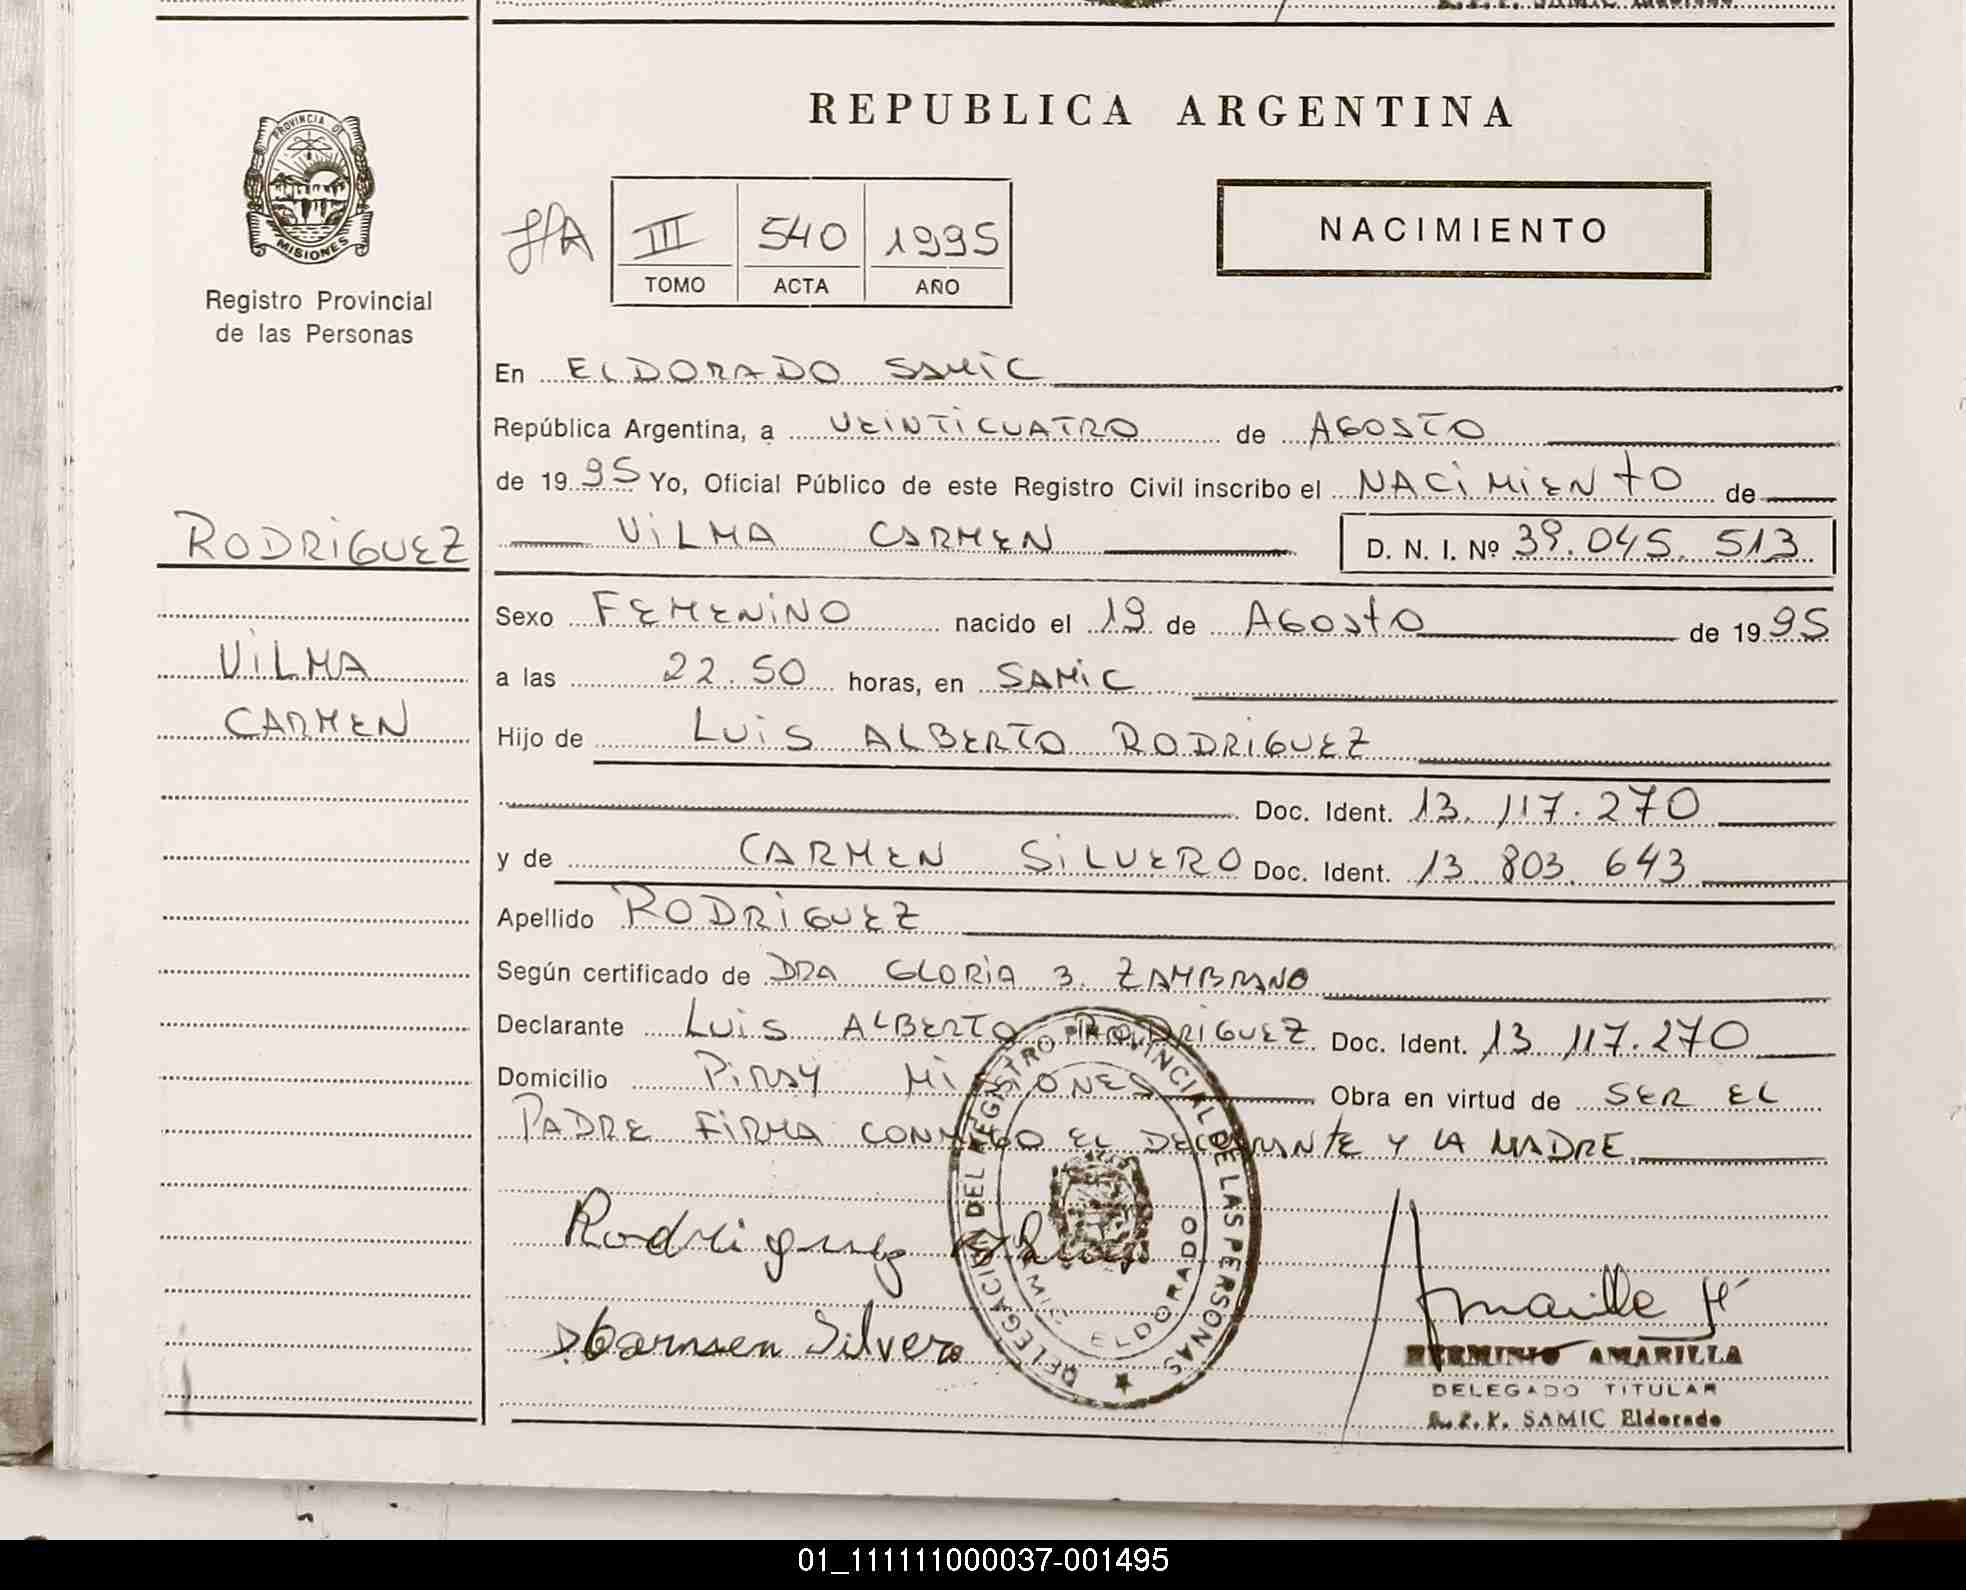 REPUBLICA ARGENTINA
PROVINCIA DE
MISIONES
Registro Provincial
de las Personas
III 540 1995
TOMO ACTA AÑO
NACIMIENTO
En ELDORADO SAMIC
República Argentina, a VEINTICUATRO de AGOSTO
de 1995 Yo, Oficial Público de este Registro Civil inscribo el NACIMIENTO de
RODRIGUEZ
VILMA CARMEN D. N. I. Nº 39.045.513
Sexo FEMENINO nacido el 19 de AGOSTO de 1995
VILMA
a las 22.50 horas, en SAMIC
CARMEN
Hijo de LUIS ALBERTO RODRIGUEZ
Doc. Ident. 13.117.270
y de CARMEN SILVERO Doc. Ident. 13.803.643
Apellido RODRIGUEZ
Según certificado de DRA GLORIA 3. ZAMBRANO
Declarante LUIS ALBERTO RODRIGUEZ Doc. Ident. 13.117.270
Domicilio PIRAY MISIONES Obra en virtud de SER EL
PADRE FIRMA CONMIGO EL DECLARANTE Y LA MADRE
DELEGACION DEL REGISTRO PROVINCIAL DE LAS PERSONAS
ELDORADO
Rodriguez
Carmen Silvero
Amarilla H
HERMINIO AMARILLA
DELEGADO TITULAR
R.P.P. SAMIC Eldorado
01_111111000037-001495